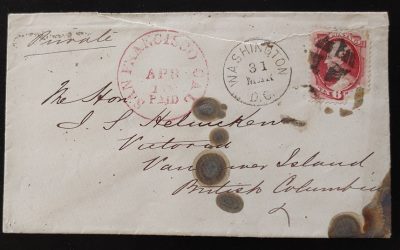 Private
SAN FRANCISCO CAL
APR
PAID
WASHINGTON
31
MAR
D.C.
The Hon
J. S. Helmcken
Victoria
Vancouver Island
British Columbia